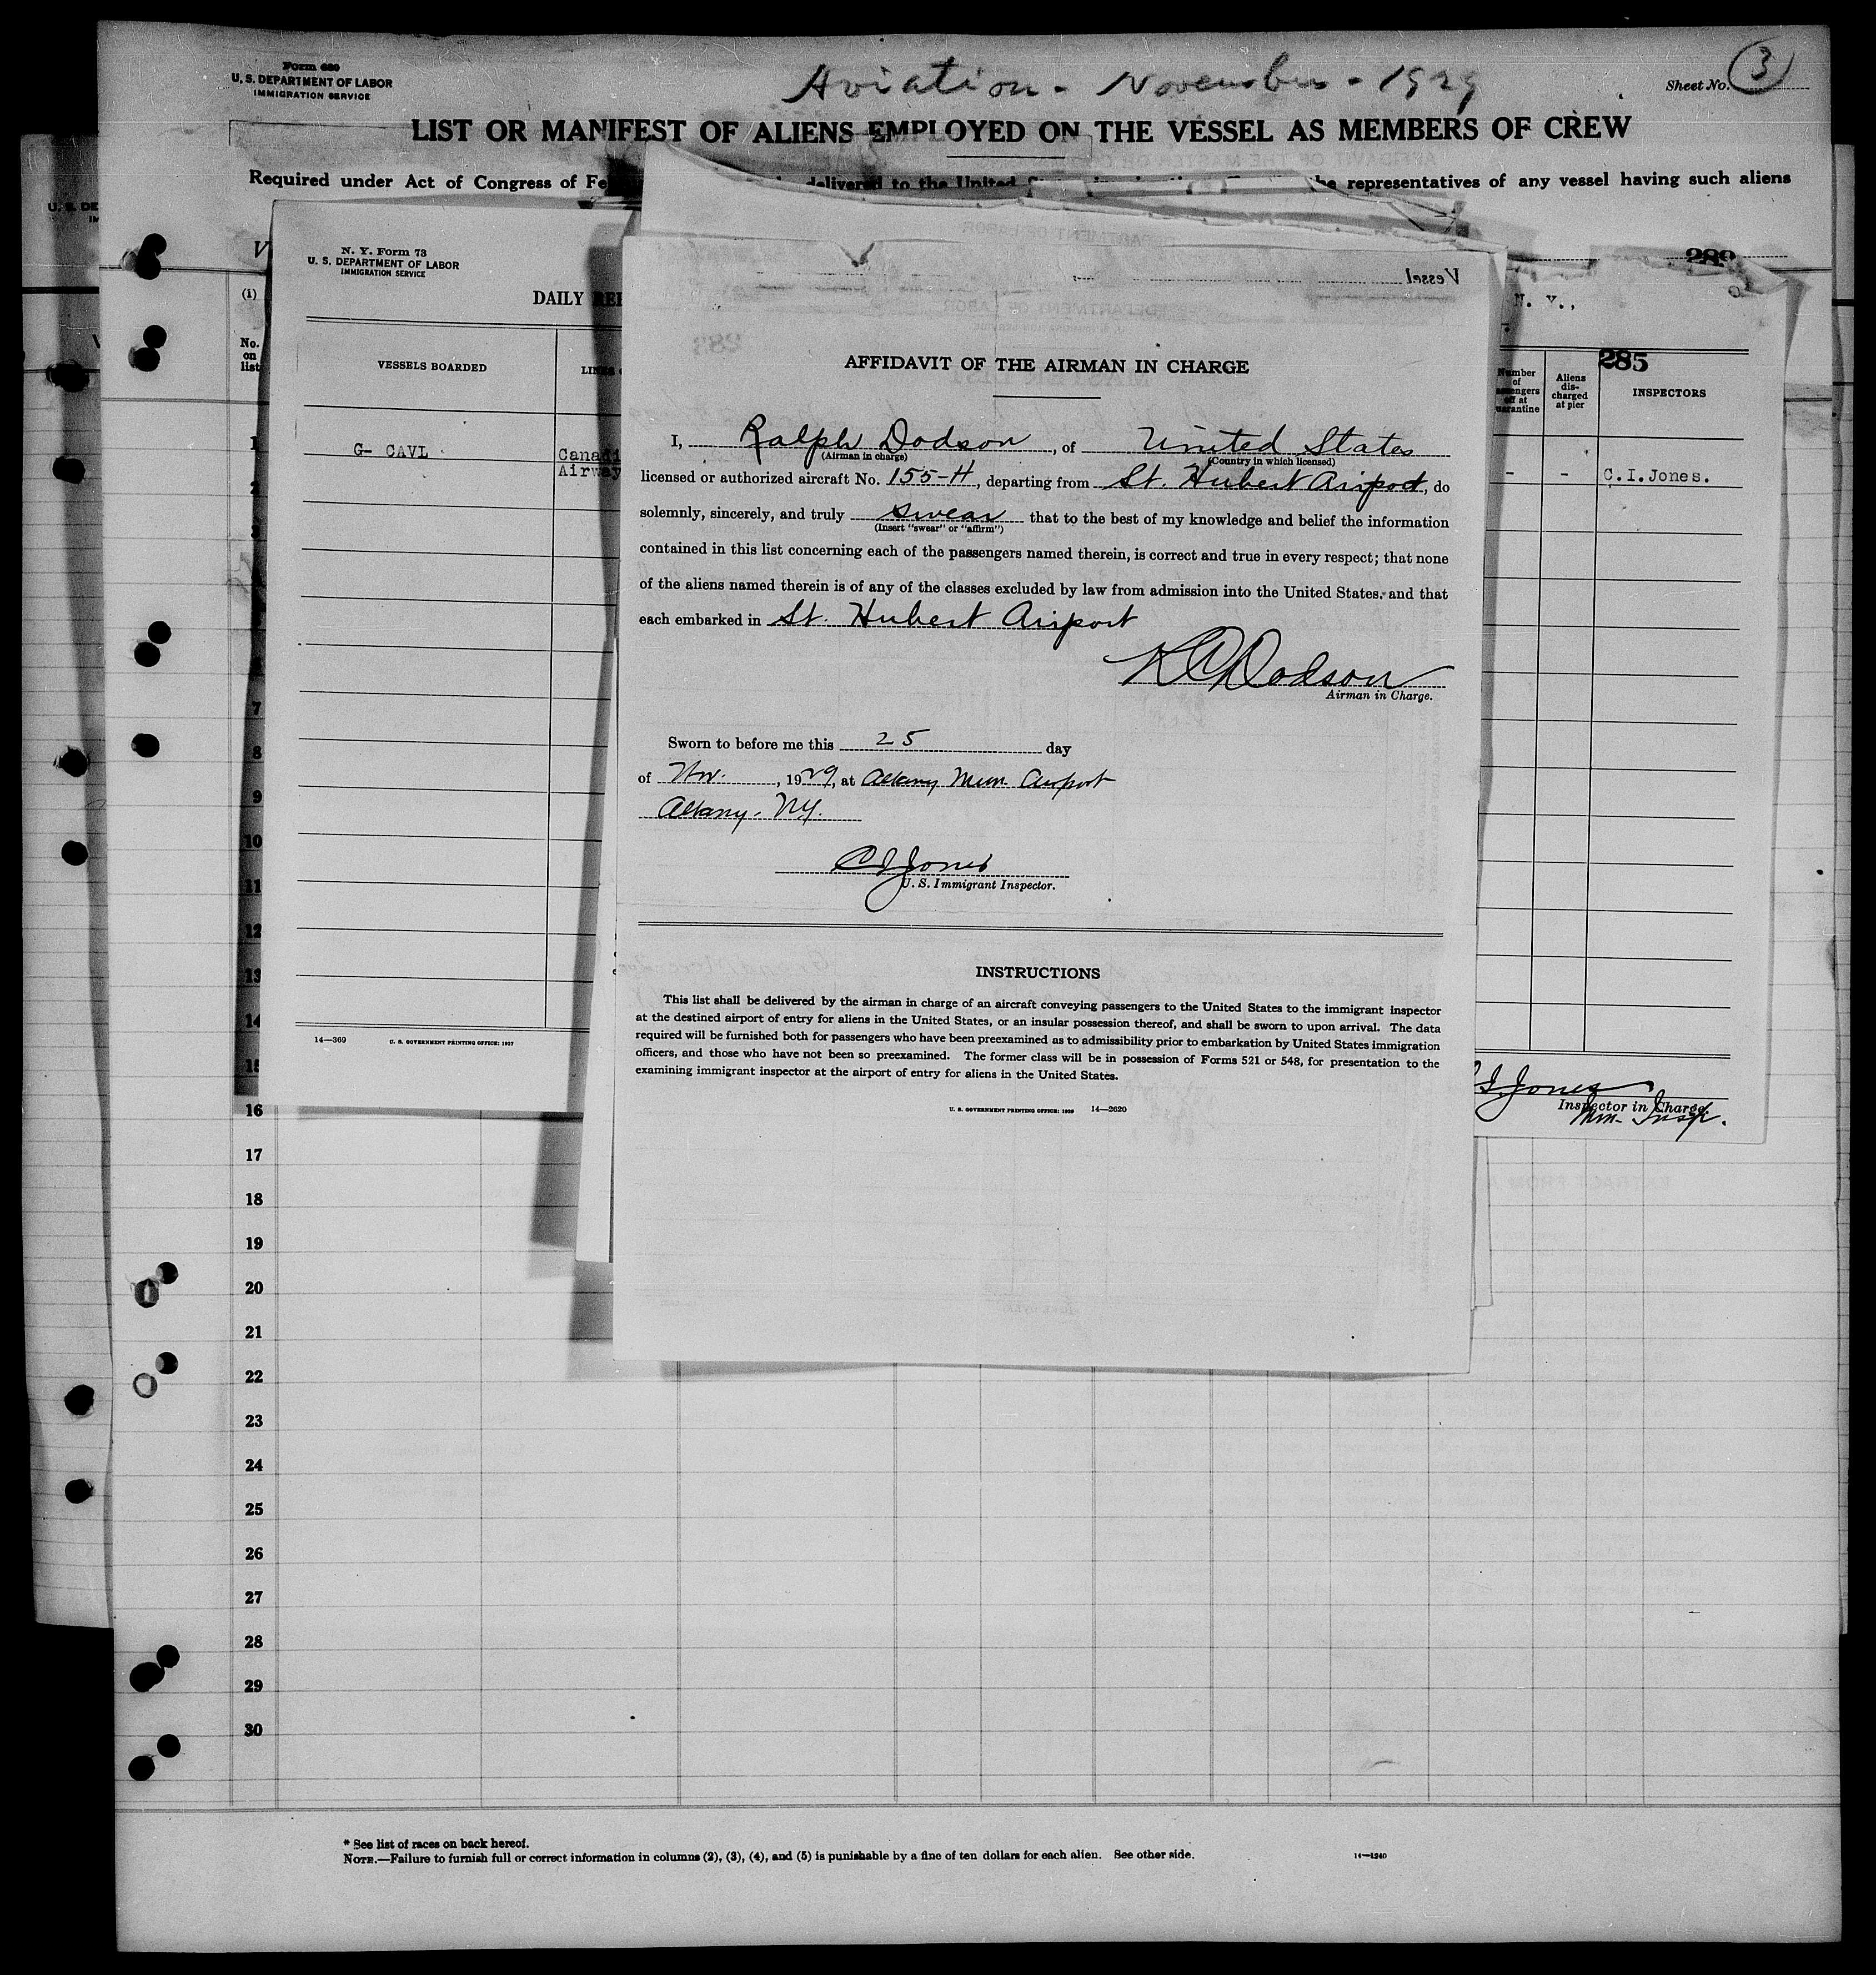 Form 680
U. S. DEPARTMENT OF LABOR
IMMIGRATION SERVICE
Aviation - November - 1929
Sheet No. 3
LIST OR MANIFEST OF ALIENS EMPLOYED ON THE VESSEL AS MEMBERS OF CREW
Required under Act of Congress of delivered to the United representatives of any vessel having such aliens
289
(1)
No. on list
N. Y. Form 73
U. S. DEPARTMENT OF LABOR
IMMIGRATION SERVICE
DAILY
N. Y.,
285
VESSELS BOARDED
Number of
off at
Aliens dis-charged at pier
INSPECTORS
G- CAVL
- - C.I.Jones.
14—369 U. S. GOVERNMENT PRINTING OFFICE: 1927
C. I. Jones
Inspector in Charge.
Imm. Insp.
Vessel
283
AFFIDAVIT OF THE AIRMAN IN CHARGE
I, Ralph Dodson, of United States
(Airman in charge) (Country in which licensed)
licensed or authorized aircraft No. 155-H, departing from St. Hubert Airport, do
solemnly, sincerely, and truly swear that to the best of my knowledge and belief the information
(Insert "swear" or "affirm")
contained in this list concerning each of the passengers named therein, is correct and true in every respect; that none
of the aliens named therein is of any of the classes excluded by law from admission into the United States, and that
each embarked in St. Hubert Airport
R C Dodson
Airman in Charge.
Sworn to before me this 25 day
of Nov., 1929, at Albany Mun. Airport
Albany, NY.
C I Jones
U. S. Immigrant Inspector.
INSTRUCTIONS
This list shall be delivered by the airman in charge of an aircraft conveying passengers to the United States to the immigrant inspector
at the destined airport of entry for aliens in the United States, or an insular possession thereof, and shall be sworn to upon arrival. The data
required will be furnished both for passengers who have been preexamined as to admissibility prior to embarkation by United States immigration
officers, and those who have not been so preexamined. The former class will be in possession of Forms 521 or 548, for presentation to the
examining immigrant inspector at the airport of entry for aliens in the United States.
U. S. GOVERNMENT PRINTING OFFICE: 1929 14—2620
1
2
3
7
8
9
10
11
12
13
14
15
16
17
18
19
20
21
22
23
24
25
26
27
28
29
30
* See list of races on back hereof.
NOTE.—Failure to furnish full or correct information in columns (2), (3), (4), and (5) is punishable by a fine of ten dollars for each alien. See other side.
14—1240